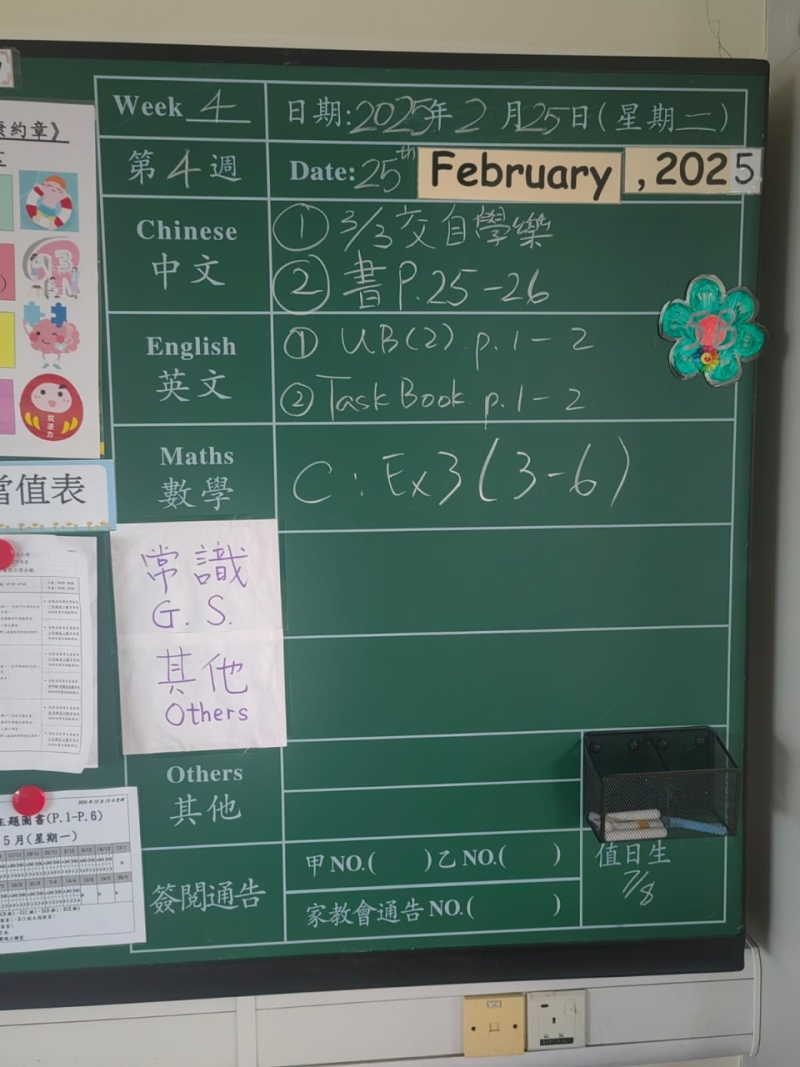 Week 4
日期:2025年2月25日(星期二)
第4週
Date: 25th February, 2025
Chinese
中文
① 3/3交自學樂
② 書P.25-26
English
英文
① UB(2) p.1-2
② Task Book p.1-2
Maths
數學
C: Ex3(3-6)
常識
G.S.
其他
Others
Others
其他
簽閱通告
甲NO.( )乙NO.( )
家教會通告NO.( )
值日生
7/8
約章》
當值表
抗逆力
主題圖書(P.1-P.6)
5月(星期一)